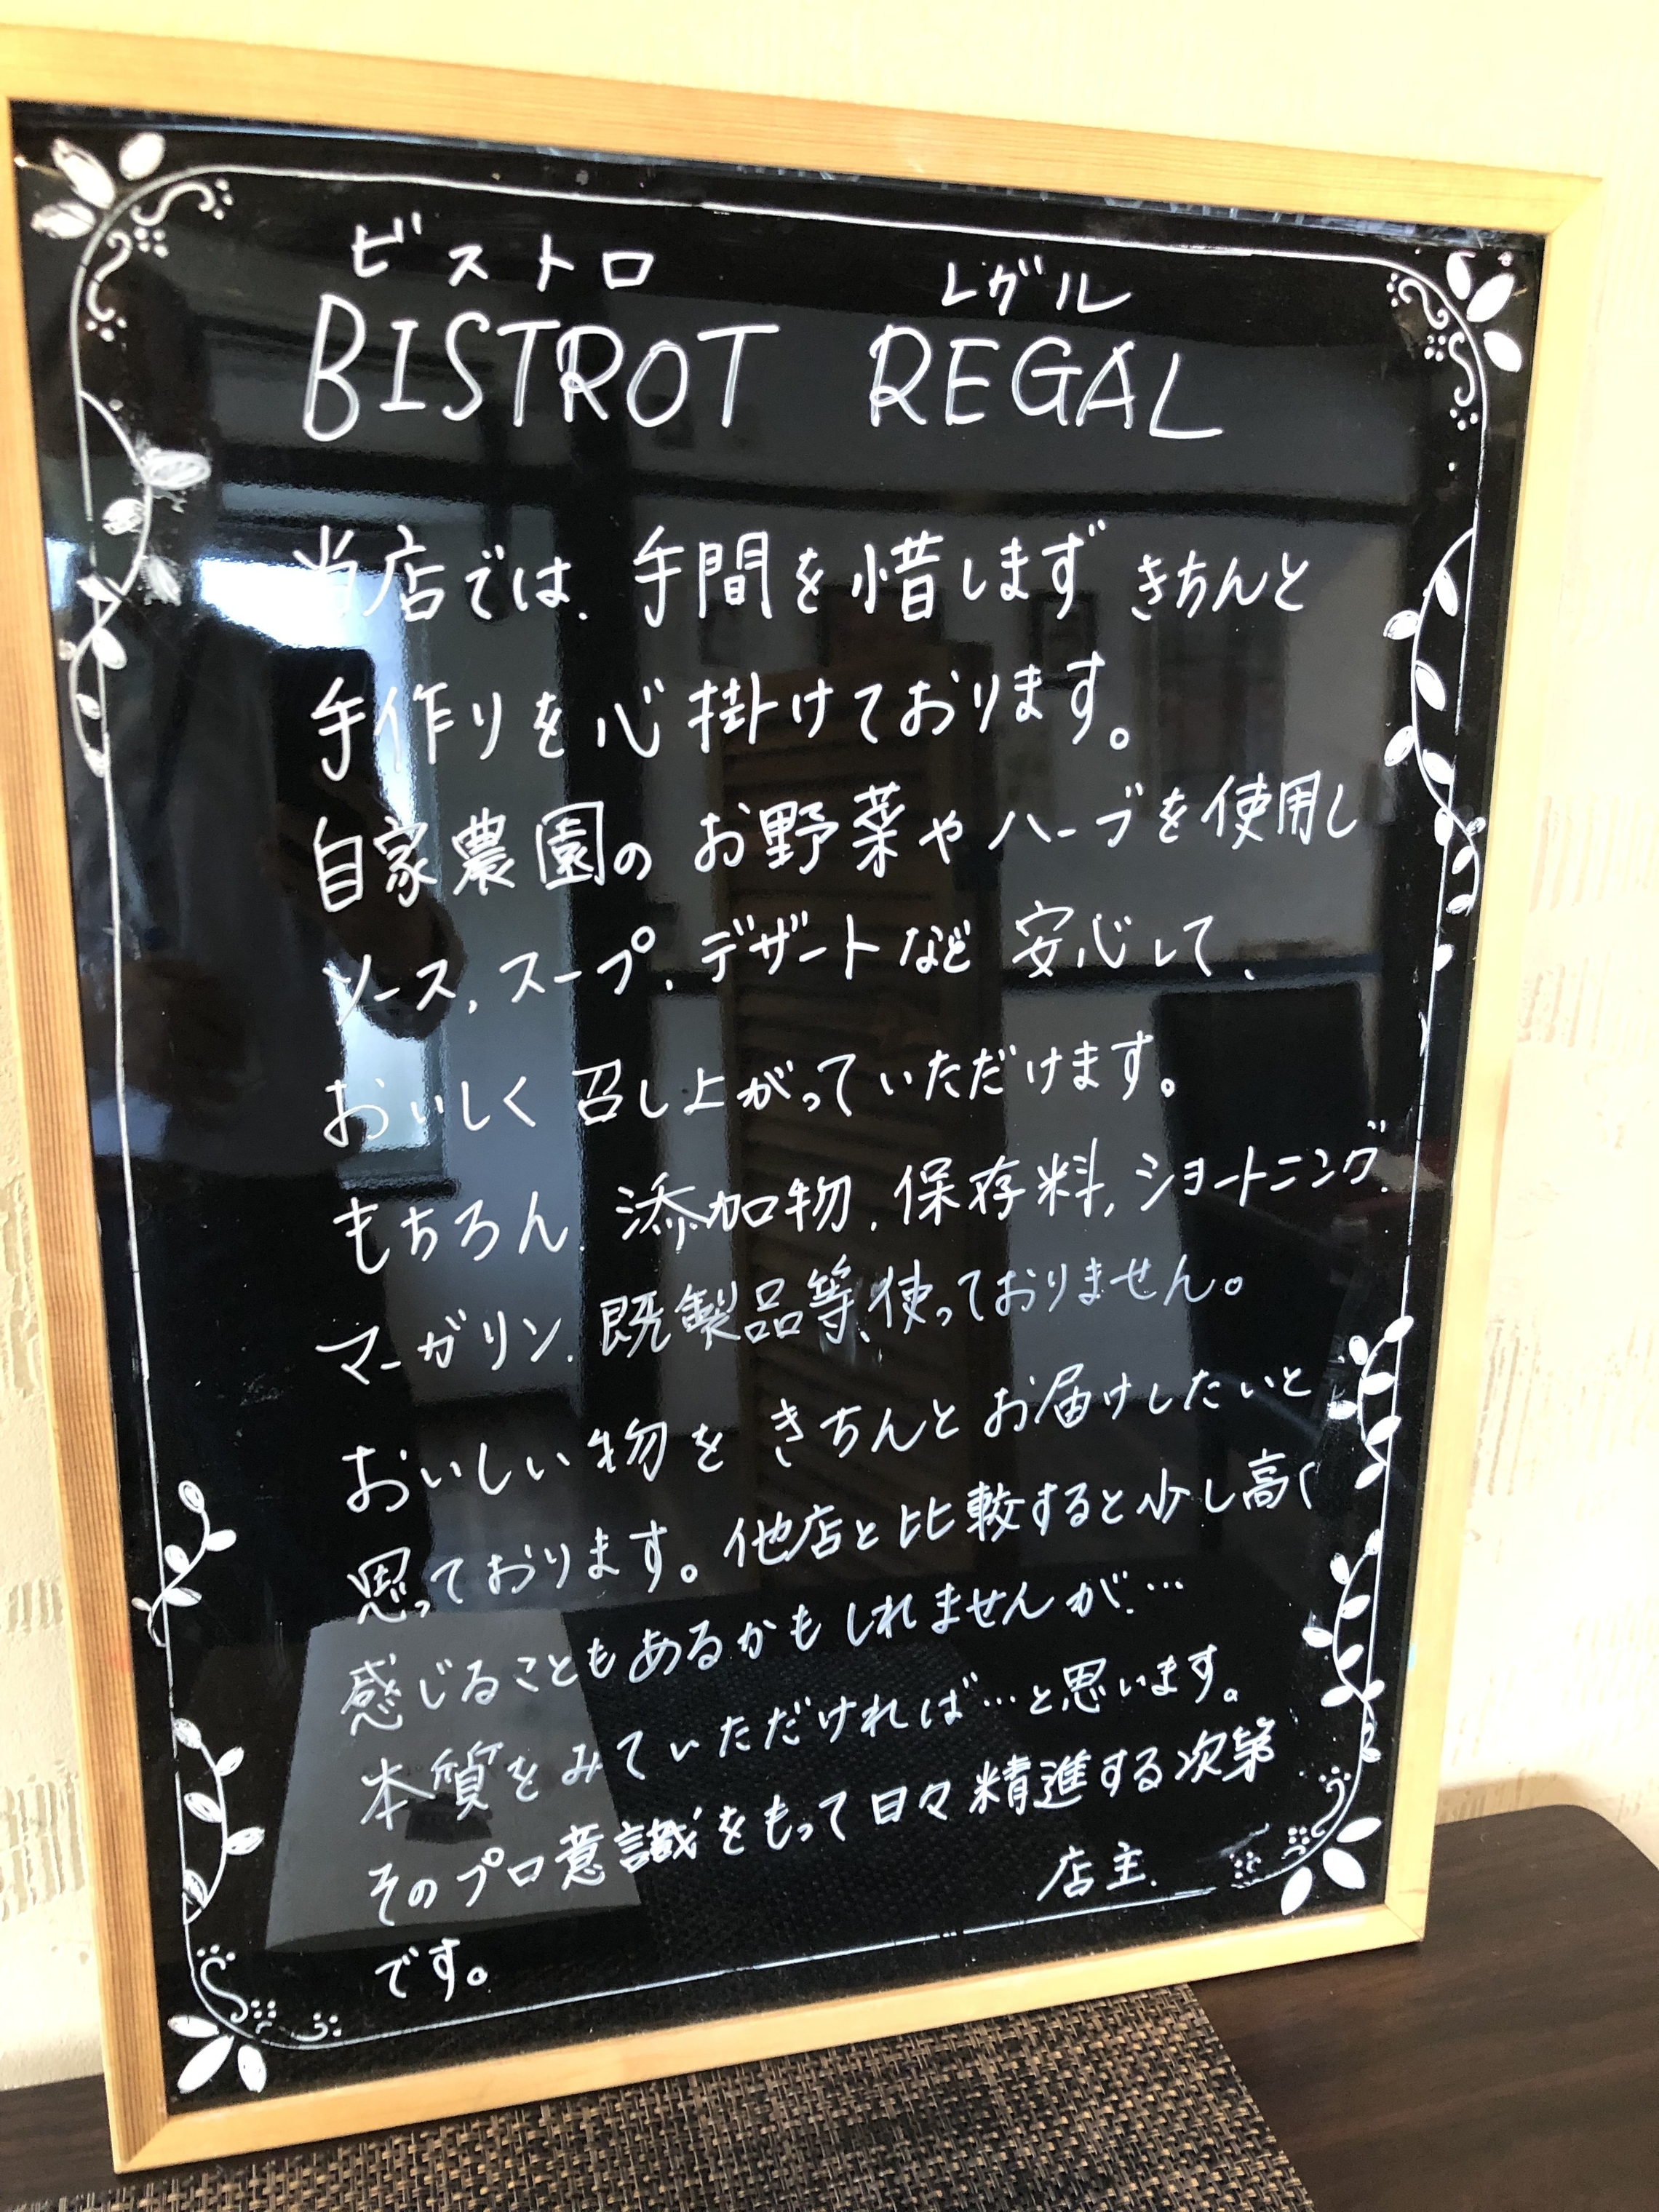 ビストロ レガル
BISTROT REGAL
当店では、手間を惜しまず きちんと
手作りを心掛けております。
自家農園の お野菜やハーブを使用し
ソース、スープ、デザートなど 安心して、
おいしく 召し上がっていただけます。
もちろん、添加物、保存料、ショートニング、
マーガリン、既製品等、使っておりません。
おいしい物を きちんとお届けしたいと
思っております。他店と比較すると少し高く
感じることもあるかもしれませんが、…
本質をみていただければ…と思います。
そのプロ意識をもって日々精進する次第
です。
店主.